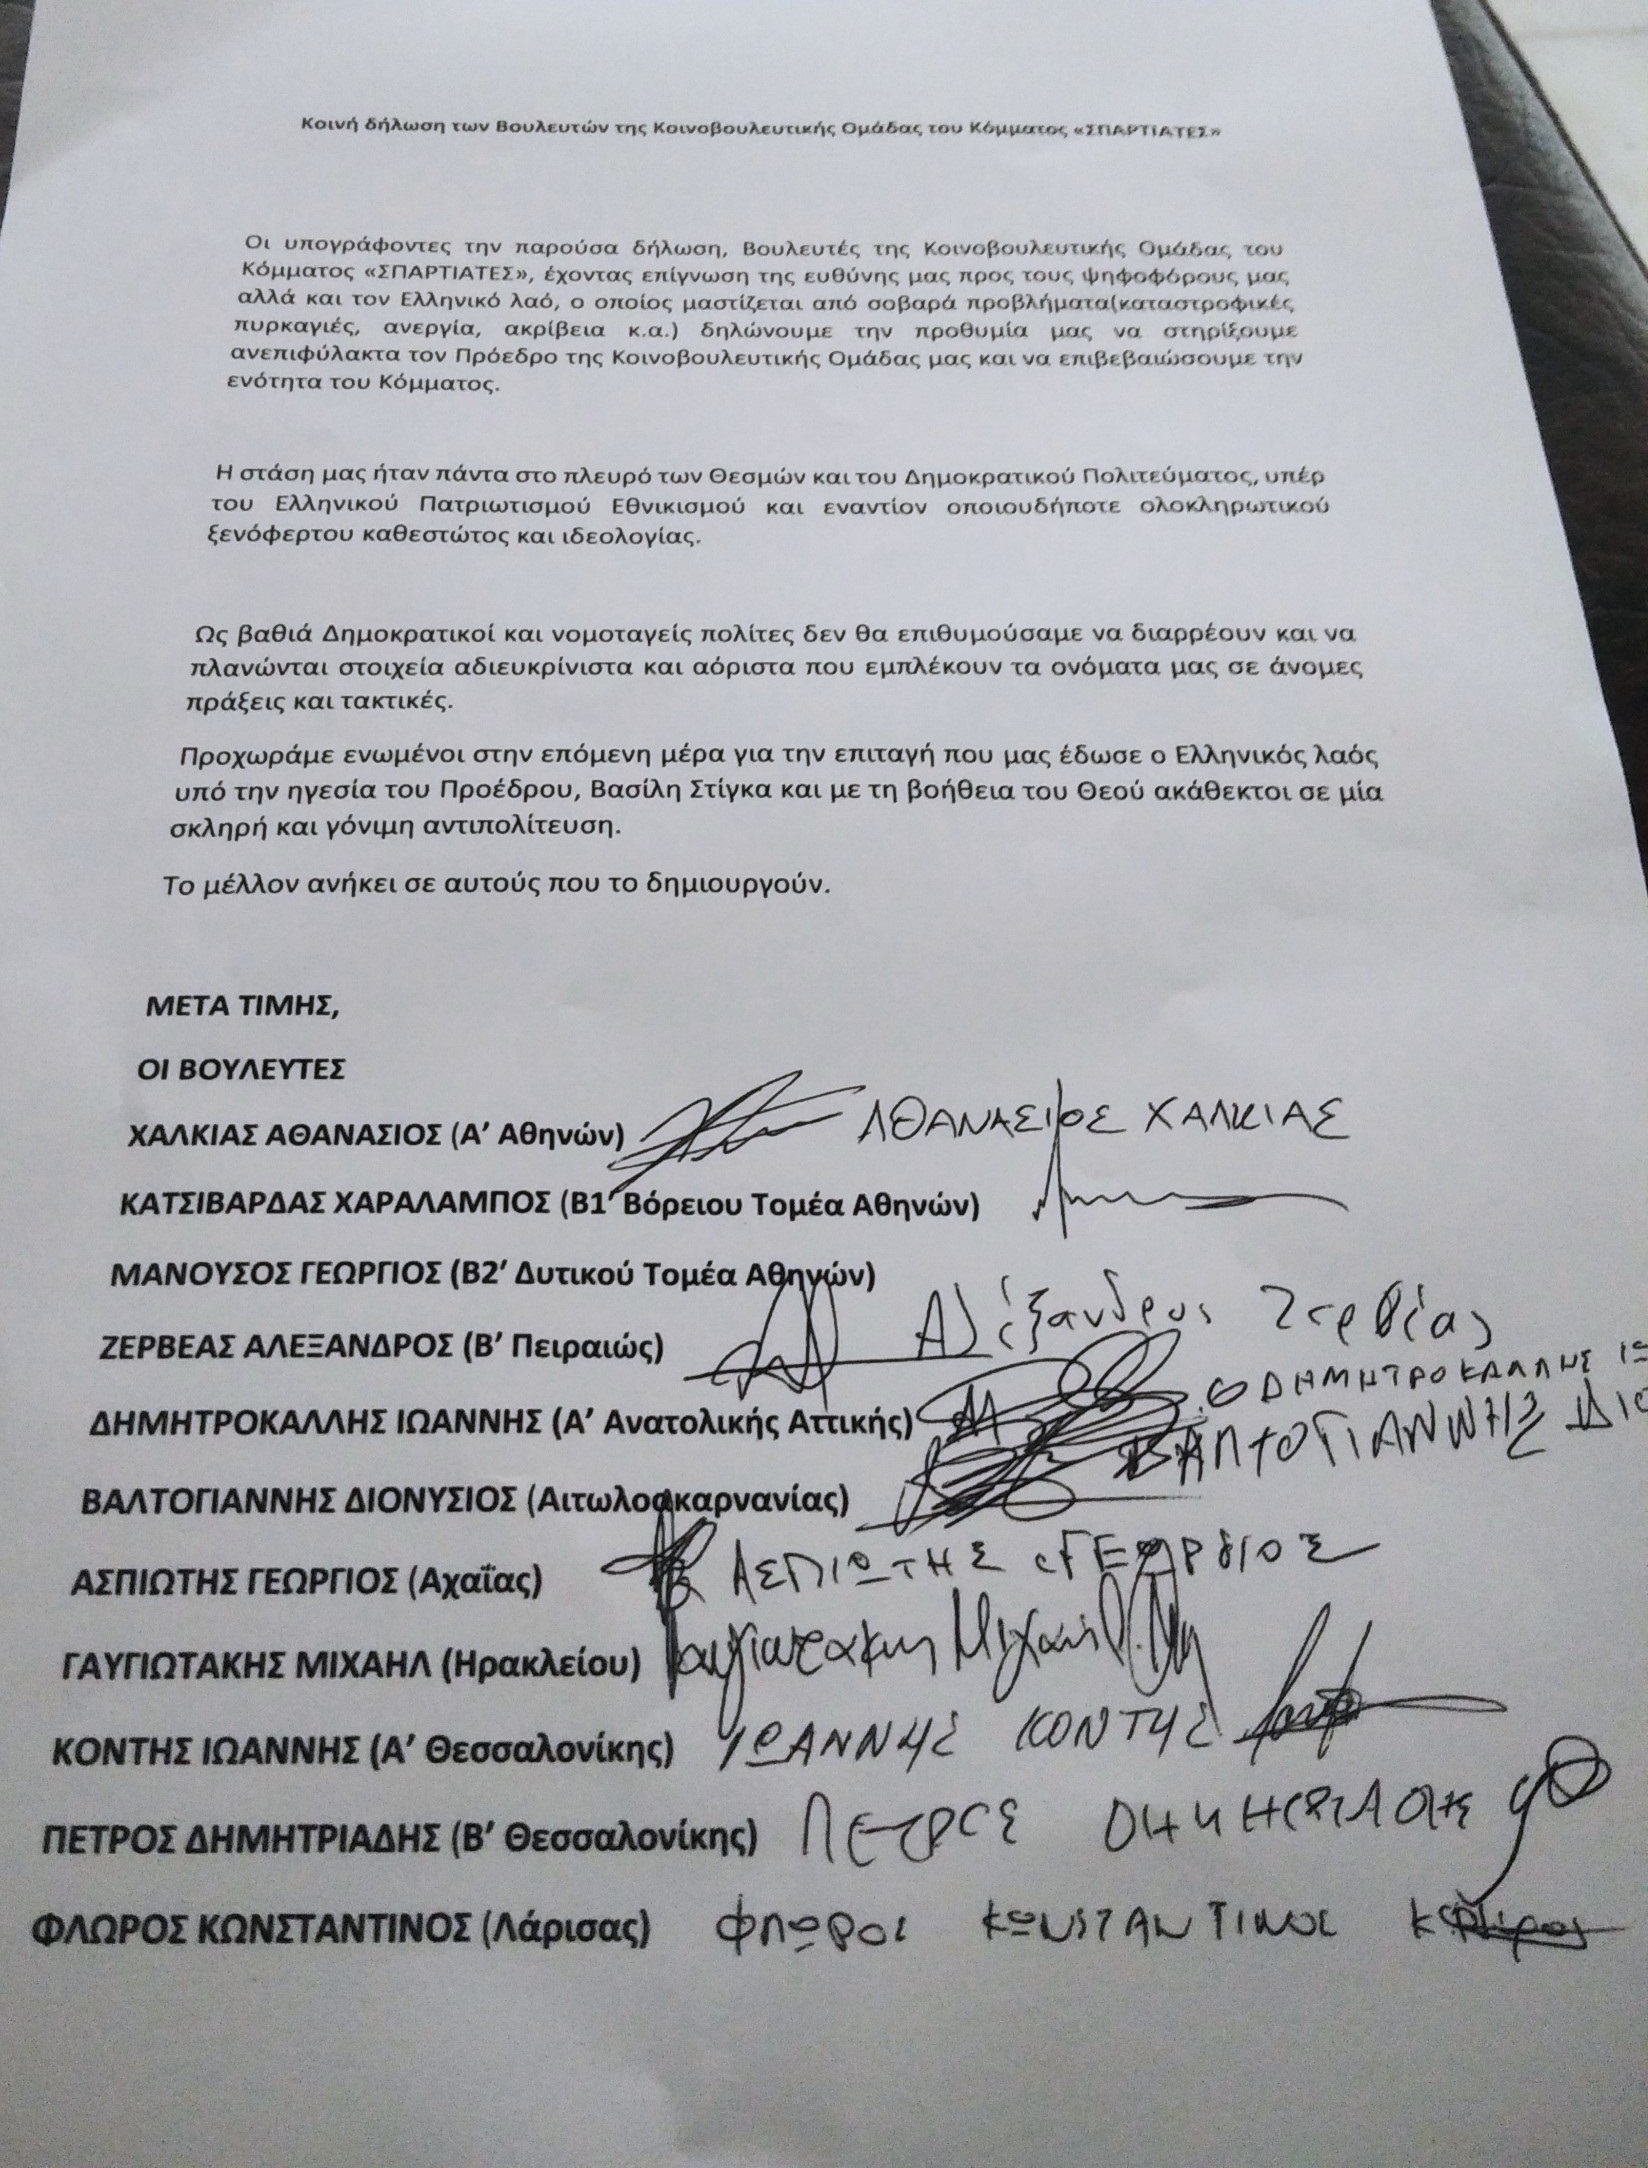 Κοινή δήλωση των Βουλευτών της Κοινοβουλευτικής Ομάδας του Κόμματος «ΣΠΑΡΤΙΑΤΕΣ»
Οι υπογράφοντες την παρούσα δήλωση, Βουλευτές της Κοινοβουλευτικής Ομάδας του
Κόμματος «ΣΠΑΡΤΙΑΤΕΣ», έχοντας επίγνωση της ευθύνης μας προς τους ψηφοφόρους μας
αλλά και τον Ελληνικό λαό, ο οποίος μαστίζεται από σοβαρά προβλήματα(καταστροφικές
πυρκαγιές, ανεργία, ακρίβεια κ.α.) δηλώνουμε την προθυμία μας να στηρίξουμε
ανεπιφύλακτα τον Πρόεδρο της Κοινοβουλευτικής Ομάδας μας και να επιβεβαιώσουμε την
ενότητα του Κόμματος.
Η στάση μας ήταν πάντα στο πλευρό των Θεσμών και του Δημοκρατικού Πολιτεύματος, υπέρ
του Ελληνικού Πατριωτισμού Εθνικισμού και εναντίον οποιουδήποτε ολοκληρωτικού
ξενόφερτου καθεστώτος και ιδεολογίας.
Ως βαθιά Δημοκρατικοί και νομοταγείς πολίτες δεν θα επιθυμούσαμε να διαρρέουν και να
πλανώνται στοιχεία αδιευκρίνιστα και αόριστα που εμπλέκουν τα ονόματα μας σε άνομες
πράξεις και τακτικές.
Προχωράμε ενωμένοι στην επόμενη μέρα για την επιταγή που μας έδωσε ο Ελληνικός λαός
υπό την ηγεσία του Προέδρου, Βασίλη Στίγκα και με τη βοήθεια του Θεού ακάθεκτοι σε μία
σκληρή και γόνιμη αντιπολίτευση.
Το μέλλον ανήκει σε αυτούς που το δημιουργούν.
ΜΕΤΑ ΤΙΜΗΣ,
ΟΙ ΒΟΥΛΕΥΤΕΣ
ΧΑΛΚΙΑΣ ΑΘΑΝΑΣΙΟΣ (Α’ Αθηνών) ΑΘΑΝΑΣΙΟΣ ΧΑΛΚΙΑΣ
ΚΑΤΣΙΒΑΡΔΑΣ ΧΑΡΑΛΑΜΠΟΣ (Β1’ Βόρειου Τομέα Αθηνών)
ΜΑΝΟΥΣΟΣ ΓΕΩΡΓΙΟΣ (Β2’ Δυτικού Τομέα Αθηνών)
ΖΕΡΒΕΑΣ ΑΛΕΞΑΝΔΡΟΣ (Β’ Πειραιώς) Αλέξανδρος Ζερβέας
ΔΗΜΗΤΡΟΚΑΛΛΗΣ ΙΩΑΝΝΗΣ (Α’ Ανατολικής Αττικής) ΔΗΜΗΤΡΟΚΑΛΛΗΣ ΙΩ
ΒΑΛΤΟΓΙΑΝΝΗΣ ΔΙΟΝΥΣΙΟΣ (Αιτωλοακαρνανίας) ΒΑΛΤΟΓΙΑΝΝΗΣ ΔΙΟ
ΑΣΠΙΩΤΗΣ ΓΕΩΡΓΙΟΣ (Αχαΐας) ΑΣΠΙΩΤΗΣ ΓΕΩΡΓΙΟΣ
ΓΑΥΓΙΩΤΑΚΗΣ ΜΙΧΑΗΛ (Ηρακλείου) Γαυγιωτάκης Μιχαήλ
ΚΟΝΤΗΣ ΙΩΑΝΝΗΣ (Α’ Θεσσαλονίκης) ΙΩΑΝΝΗΣ ΚΟΝΤΗΣ
ΠΕΤΡΟΣ ΔΗΜΗΤΡΙΑΔΗΣ (Β’ Θεσσαλονίκης) ΠΕΤΡΟΣ ΔΗΜΗΤΡΙΑΔΗΣ
ΦΛΩΡΟΣ ΚΩΝΣΤΑΝΤΙΝΟΣ (Λάρισας) ΦΛΩΡΟΣ ΚΩΝΣΤΑΝΤΙΝΟΣ